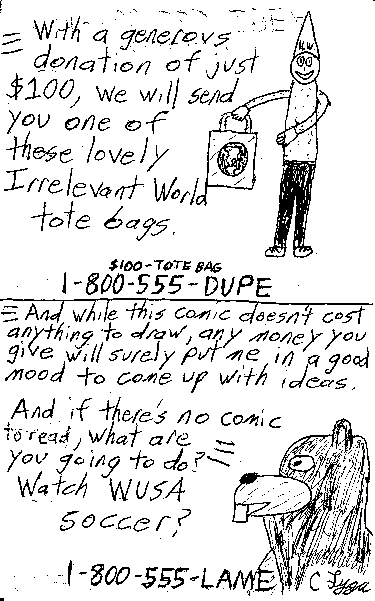 With a generous
donation of just
$100, we will send
you one of
these lovely
Irrelevant World
tote bags.
$100-TOTE BAG
1-800-555-DUPE
And while this comic doesn't cost
anything to draw, any money you
give will surely put me in a good
mood to come up with ideas.
And if there's no comic
to read, what are
you going to do?
Watch WUSA
soccer?
1-800-555-LAME